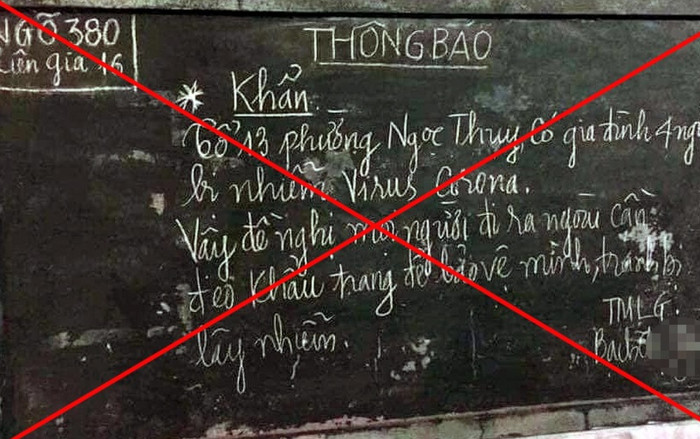 NGÕ 380
Liên gia 16
THÔNG BÁO
* Khẩn.
Tổ 13 phường Ngọc Thụy, Có gia đình 4 ngư
bị nhiễm Virus Corona.
Vậy đề nghị mọi người đi ra ngoài cần
đeo khẩu trang để bảo vệ mình, tránh bị
lây nhiễm.
TMLG: